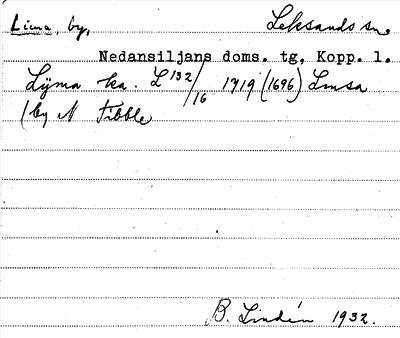 Lima, by, Leksands sn.
Nedansiljans doms. tg, Kopp. l.
Lijma ka. L 132/16 1719 (1696) Lmsa
(by N Tibble
B. Lindén 1932.